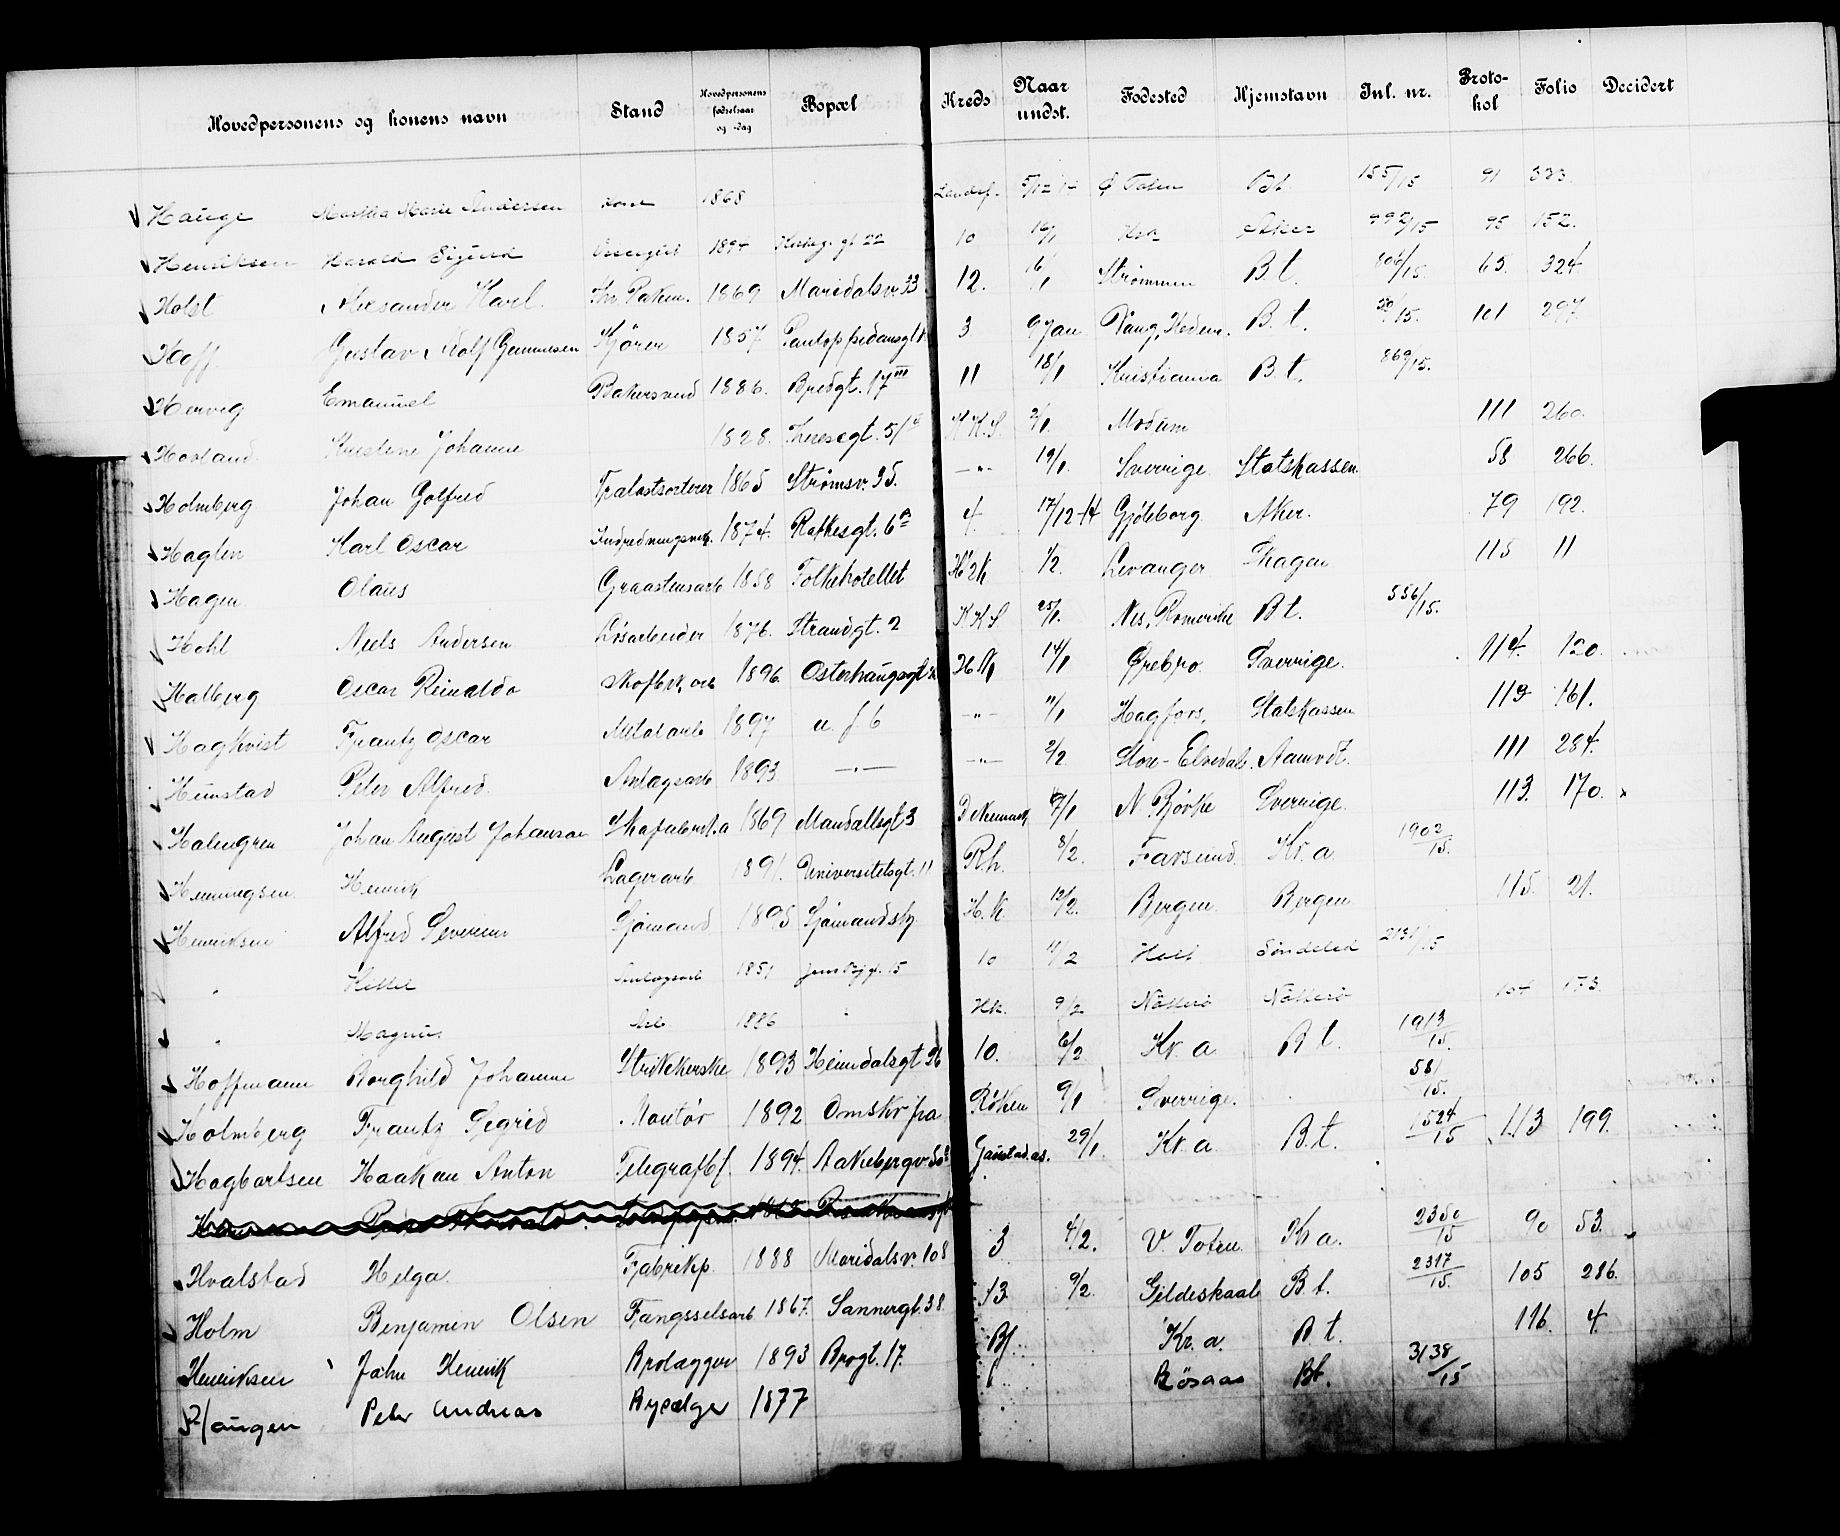 Hovedpersonens og konens navn Stand Hovedpersonens fødselsaar og -dag Bopæl Kreds Naar undst. Fødested Hjemstavn Jnl. nr. Proto-kol Folio Decidert
Hauge Martha Marie Andersen Kone 1868 Landsf. 5/12 14 Ø Toten Bt. 155/15 91 333.
Henriksen Harald Sigurd Visergut 1894 22 10 16/1 Hsk Aker 992/15 95 152.
Holst Aleksander Karl. 1869 Maridalsv. 33 12. 16/1 Strømmen B. t. 806/15. 65. 324
Hoff. Gustav Adolf Gunnusen Kjører 1857 3 9 Jan Vang, Hedem. B. t. 20/15. 101 297
Hervig Emanuel Bakersvend 1886. Bredgt. 17 III 11 18/1 Kristiania B. t. 869/15.
Hovland. Kristine Johanne 1828. Theresegt. 51 K.K.S. 2/1. Modum 111 260.
Holmberg Johan Gotfred Trælastsorterer 1865 Strømsv. 35. —"— 19/1. Sverrige Statskassen 58 266.
Haglen Karl Oscar 1874. Rathkesgt. 6 4. 17/12-14 Gjøteborg Aker. 79 192.
Hagen Olaus Graastensarb 1858 Folkehotellet H 2 K 1/2. Levanger Skogn 115 11
Hohl Niels Andersen Løsarbeider 1876. Strandgt. 2 K K S 25/1. Nes, Romerike B t. 556/15.
Halberg Oscar Reinaldo Skofbrk, arb 1896. Osterhaugsgt H. K 14/1 Ørebro. Sverrige. 114. 120.
Hagkvist Frantz Oscar Metalarb 1897 u. f 6 —"— 11/1 Hagfors, Statskassen 113 161.
Heimstad Peter Alfred. Anlægsarb 1893 —"— —"— 2/2 Store-Elvedal. Aamodt. 111 284.
Halengren Johan August Johanson Skofabrik.a 1869 Mandallsgt 3 D Nemark 7/1 N. Bjørke Sverrige. 113. 170.
Henningsen Henrik Lagerarb 1891. Universitetsgt. 11 Rh. 8/2. Farsund. Kr. a 1902/15.
Henriksen Alfred Severin Sjømand 1895 Sjømandshj. H. K 12/2. Bergen Bergen 115. 21.
" Kittel Anlægsarb 1851 Jens Bjgt. 15 10 11/2 Holt Søndeled 2131/15
" Magnus. Arb 1886 " Hk. 9/2 Nøtterø Nøtterø 104 173.
Hoffmann Borghild Johanne Strikkerske 1893 Heimdalsgt 26 10. 6/2 Kr. a B t. 1913/15.
Holmberg Frantz Sigrid Montør 1892 Omskr fra Røken 9/1 Sverrige. 581/15.
Hagbartsen Haakan Anton Telegrafbt. 1894. Aakebergv. Gaustad as. 29/1. Kr. a B. t. 1524/15 113 199.
Hvalstad Helga. Fabrikp. 1888 Maridalsv. 108 3 4/2. V. Toten. Kr a. 2350/15 90 53.
Holm Benjamin Olsen Fængsselsarb 1867. Sannergt. 38 13 9/2. Gildeskaal B t. 2317/15. 105 286.
Henriksen John Henrik Brolægger 1893 Brogt. 17. Bf Kr. a. B t. 116. 4.
Haugen Peter Andreas Bysælger 1877 Røsaas Bt. 3138/15